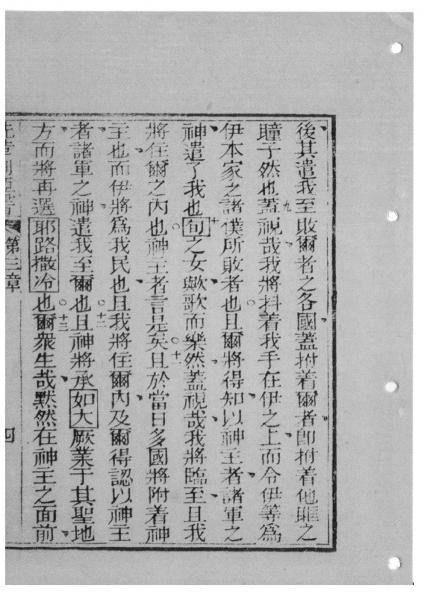 後其遣我至敗爾者之各國蓋拊着爾者卽拊着他眶之
瞳子然也九蓋視哉我將抖着我手在伊之上而令伊等爲
伊本家之諸僕所敗者也且爾將得知以神主者諸軍之
神遣了我也十旬之女歟歌而樂然蓋視哉我將臨至且我
將住爾之內也神主者言是矣十一且於當日多國將附着神
主也而伊將爲我民也且我將住爾內及爾得認以神主
者諸軍之神遣我至爾也十二且神將承如大厥業于其聖地
方而將再選耶路撒冷也十三爾衆生哉默然在神主之面前
第三章 四